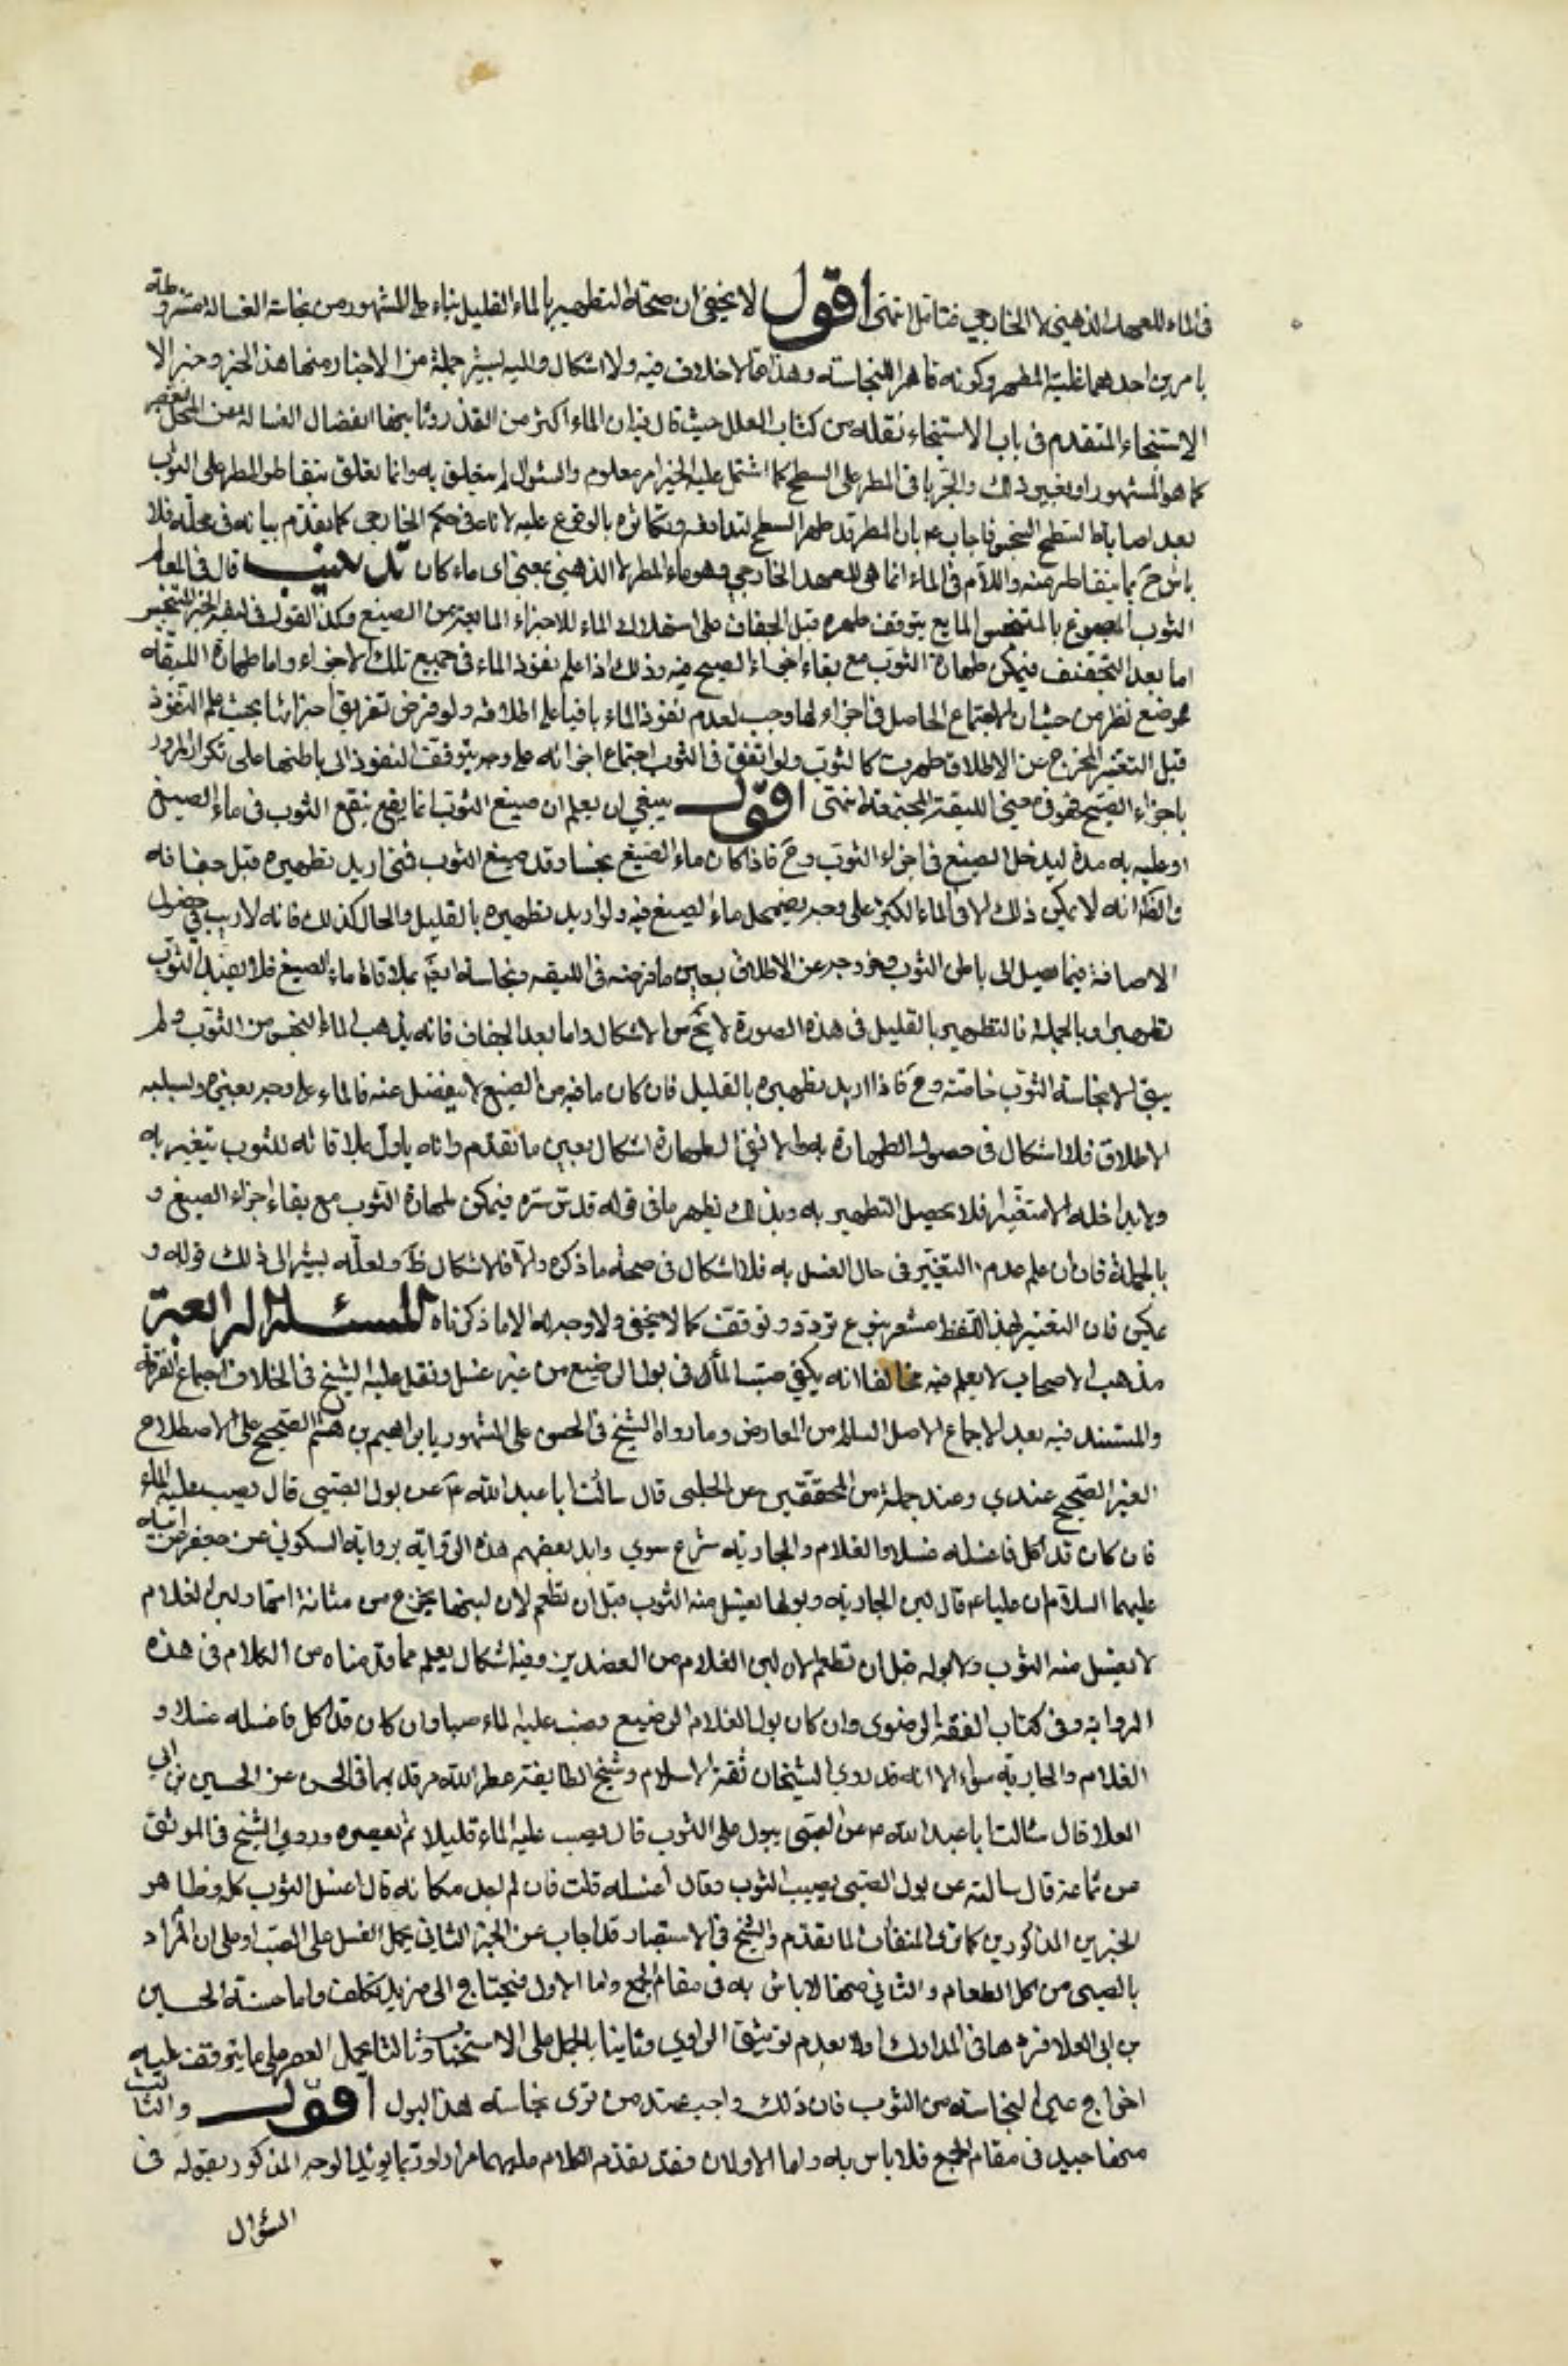 في الماء للعهد الذهني لا الخارجي فتأمل انتهى اقول لا يخفى ان صحة التطهير بالماء القليل بناء على المشهور من نجاسة الغسالة مشروطة
بامرين احدهما غلبة المطهر وكونه قاهرا للنجاسة وهذا مما لا خلاف فيه ولا اشكال واليه يشير جملة من الاخبار منها هذا الخبر وخبر الا
الاستنجاء المتقدم في باب الاستنجاء نقله من كتاب العلل حيث قال فيه ان الماء اكثر من القذر وثانيهما انفصال الغسالة عن المحل بعصر
كما هو المشهور او بغير ذلك والجزء ما في المطر على السطح كما اشتمل عليه الخبر امر معلوم والسئوال لم يتعلق به وانما تعلق بتقاطر المطر على الثوب
بعد اصابة السطح النجس فاجاب ع بان المطر قد طهر السطح لتدافعه وتكاثره بالوقوع عليه لانه في حكم الجاري كما تقدم بيانه في محله فلا
باس ح بما يتقاطر منه واللام في الماء انما هي للعهد الخارجي وهو ماء المطر لا الذهني بمعنى اي ماء كان تذنيب قال في المعالم
الثوب المصبوغ بالمتنجس المايع يتوقف طهره قبل الجفاف على استهلاك الماء للاجزاء المايعة من الصبغ وكذا القول في ليقة الحبر المتنجس
اما بعد التجفيف فيمكن طهارة الثوب مع بقاء اجزاء الصبغ فيه وذلك اذا علم نفوذ الماء في جميع تلك الاجزاء واما طهارة الليقة
فموضع نظر من حيث ان الاجتماع الحاصل في اجزاء لها وجب لعدم نفوذ الماء باقيا على اطلاقه ولو فرض تفريق اجزائها بحيث علم النفوذ
قبل التغير المخرج عن الاطلاق طهرت كالثوب ولو اتفق في الثوب اجتماع اجزائه على وجه يتوقف النفوذ الى باطنها على تكرار المرور
باجزاء الصبغ فهو في معنى الليقة المجتمعة انتهى اقول ينبغي ان يعلم ان صبغ الثوب انما يقع بنقع الثوب في ماء الصبغ
او غليه به مدة ليدخل الصبغ في اجزاء الثوب وح فاذا كان ماء الصبغ نجسا وقد صبغ الثوب فمتى اريد تطهيره قبل جفافه
والظ انه لا يمكن ذلك الا في الماء الكثير على وجه يضمحل ماء الصبغ فيه ولو اريد تطهيره بالقليل والحال كذلك فانه لا ريب في حصول
الاضافة فيما يصل الى باطن الثوب وخروجه عن الاطلاق بعين ما فرضه في الليقة ونجاسته ايضا بملاقاة ماء الصبغ فلا يفيد الثوب
تطهيرا وبالجملة فالتطهير بالقليل في هذه الصورة لا يخ من الاشكال واما بعد الجفاف فانه يذهب الماء النجس من الثوب ولم
يبق الا نجاسة الثوب خاصة وح فاذا اريد تطهيره بالقليل فان كان ما فيه من الصبغ لا ينفصل عنه في الماء على وجه يغيره ويسلبه
الاطلاق فلا اشكال في حصول الطهارة به والا ففي الطهارة اشكال بعين ما تقدم وانه باول ملاقاته للثوب يتغير به
ولا يداخله الا متغيرا فلا يحصل التطهير به وبذلك يظهر ما في قوله قدس سره فيمكن طهارة الثوب مع بقاء اجزاء الصبغ و
بالجملة فان علم عدم التغير في حال الغسل به فلا اشكال في صحة ما ذكره والا فالاشكال ظ ولعله يشير الى ذلك قوله و
يمكن فان التعبير بهذا اللفظ مشعر بنوع تردد وتوقف كما لا يخفى ولا وجه له الا ما ذكرناه المسئلة الرابعة
مذهب الاصحاب لا يعلم فيه مخالفا انه يكفي صب الماء في بول الرضيع من غير غسل ونقل عليه الشيخ في الخلاف اجماع الفرقة
والمستند فيه بعد الاجماع الاصل السالم من المعارض وما رواه الشيخ في الحسن على المشهور بابراهيم بن هاشم الصحيح على الاصطلاح
الغير الصحيح عندي وعند جملة من المحققين عن الحلبي قال سالت ابا عبد الله ع عن بول الصبي قال يصب عليه الماء
فان كان قد اكل فاغسله غسلا والغلام والجارية شرع سوي وايد بعضهم هذه الرواية برواية السكوني عن جعفر عن ابيه
عليهما السلام ان عليا ع قال لبن الجارية وبولها يغسل منه الثوب قبل ان تطعم لان لبنها يخرج من مثانة امها ولبن الغلام
لا يغسل منه الثوب ولا بوله قبل ان تطعم لان لبن الغلام من العضدين وفيه اشكال يعلم مما قدمناه من الكلام في هذه
الرواية وفي كتاب الفقه الرضوي وان كان بول الغلام الرضيع وصب عليه الماء صبا وان كان قد اكل فاغسله غسلا و
الغلام والجارية سواء الا انه قد روي الشيخان ثقة الاسلام وشيخ الطايفة عطر الله مرقديهما في الحسن عن الحسين بن ابي
العلا قال سالت ابا عبد الله ع عن الصبي يبول على الثوب قال يصب عليه الماء قليلا ثم يعصره وروي الشيخ في الموثق
عن سماعة قال سالته عن بول الصبي يصيب الثوب فقال اغسله قلت فان لم اجد مكانه قال اغسل الثوب كله وظاهر
الخبرين المذكورين كما ترى المنافاة لما تقدم والشيخ في الاستبصار قد اجاب عن الخبر الثاني بحمل الغسل على الصب او على ان المراد
بالصبي من اكل الطعام والثاني منهما لا باس به في مقام الجمع واما الاول فيحتاج الى مزيد تكلف واما حسنة الحسين
بن ابي العلا فردها في المدارك اولا بعدم توثيق الراوي وثانيا بالحمل على الاستحباب وثالثا بحمل العصر على ما يتوقف عليه
اخراج عين النجاسة من الثوب فان ذلك واجب عند من نرى نجاسة هذا البول اقول والثالث
منهما جيد في مقام الجمع فلا باس به واما الاولان فقد تقدم الكلام عليهما مرارا وربما يؤيد الوجه المذكور بقوله في
السؤال